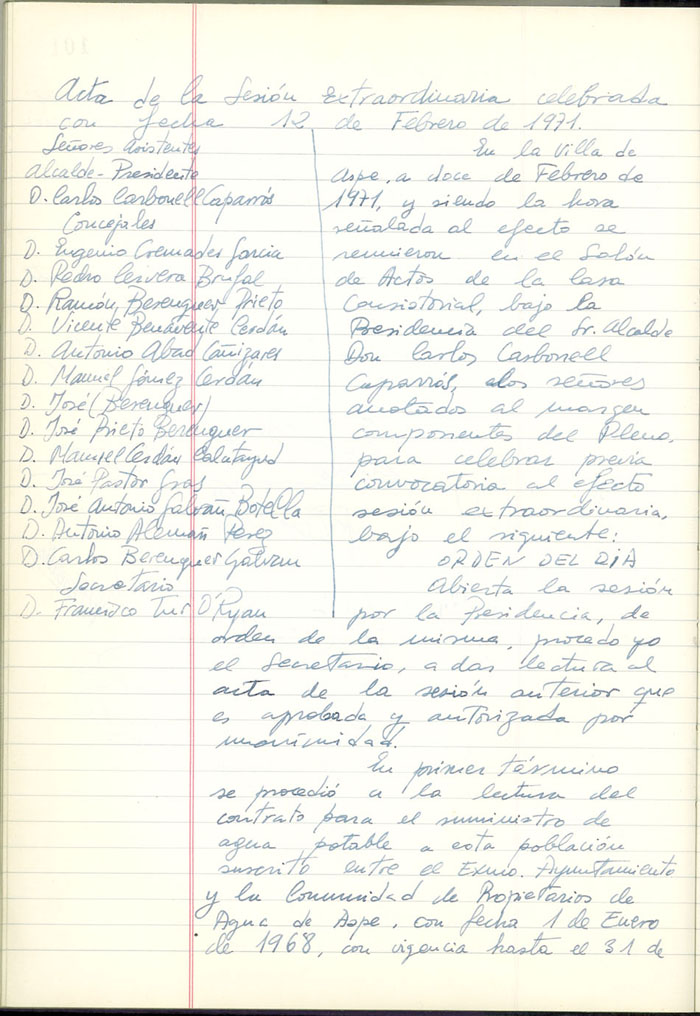 Acta de la Sesión Extraordinaria celebrada
con fecha 12 de Febrero de 1971.
Señores Asistentes
Alcalde-Presidente
D. Carlos Carbonell Caparrós
Concejales
D. Eugenio Cremades Garcia
D. Pedro Cervera Brufal
D. Ramón Berenguer Prieto
D. Vicente Benavente Cerdán
D. Antonio Abad Cañizares
D. Manuel Gómez Cerdán
D. José (Berenguer)
D. José Prieto Berenguer
D. Manuel Cerdán Calatayud
D. José Pastor Gras
D. José Antonio Galván Botella
D. Antonio Alemañ Perez
D. Carlos Berenguer Galvan
Secretario
D. Francisco Tur O'Ryan
En la Villa de
Aspe, a doce de Febrero de
1971, y siendo la hora
señalada al efecto se
reunieron en el Salón
de Actos de la Casa
Consistorial, bajo la
Presidencia del Sr. Alcalde
Don Carlos Carbonell
Caparrós, los señores
anotados al margen
componentes del Pleno,
para celebrar previa
convocatoria al efecto
sesión extraordinaria,
bajo el siguiente:
ORDEN DEL DIA
Abierta la sesión
por la Presidencia, de
orden de la misma, procedo yo
el Secretario, a dar lectura al
acta de la sesión anterior que
es aprobada y autorizada por
unanimidad.
En primer término
se procedió a la lectura del
contrato para el suministro de
agua potable a esta población
suscrito entre el Excmo. Ayuntamiento
y la Comunidad de Propietarios de
Agua de Aspe, con fecha 1 de Enero
de 1968, con vigencia hasta el 31 de